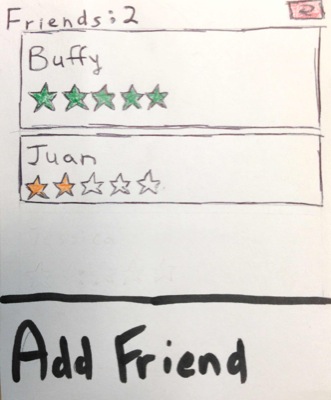 Friends: 2
2
Buffy
Juan
Add Friend